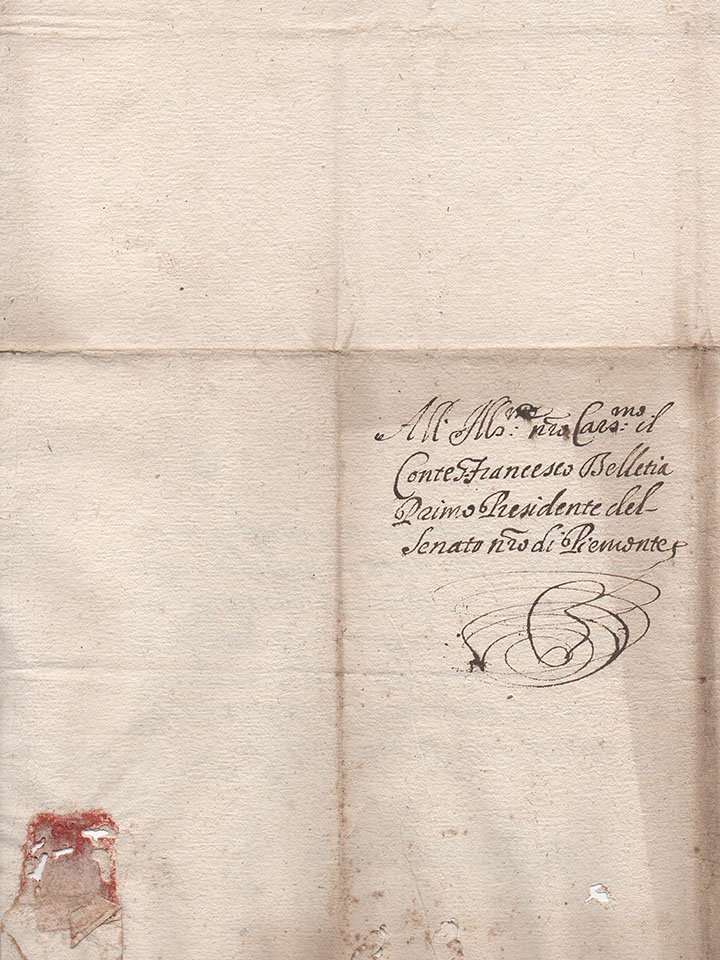 All' Ill.mo nro Car.mo il
Conte Francesco Belletia
Primo Presidente del
Senato nro di Piemonte